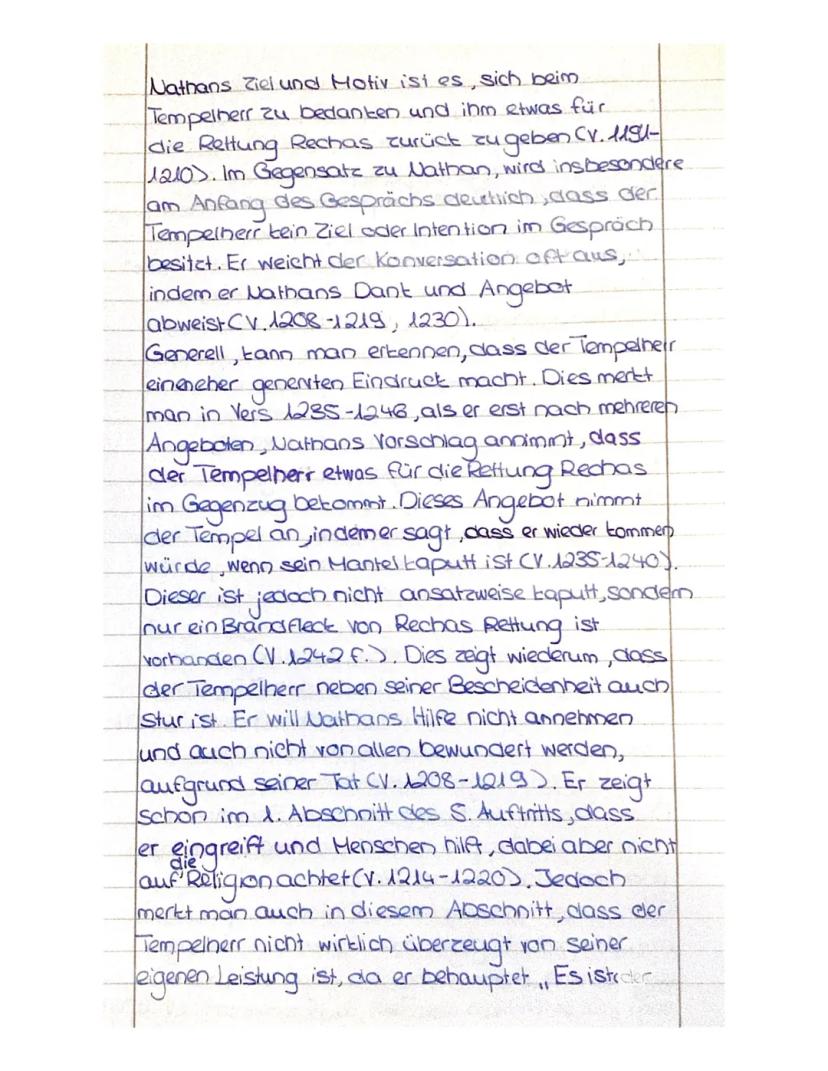 Nathans Ziel und Motiv ist es, sich beim
Tempelherr zu bedanken und ihm etwas für
die Rettung Rechas zurück zu geben (V. 1191-
1210). Im Gegensatz zu Nathan, wird insbesondere
am Anfang des Gesprächs deutlich, dass der
Tempelherr kein Ziel oder Intention im Gespräch
besitzt. Er weicht der Konversation oft aus,
indem er Nathans Dank und Angebot
abweist (V. 1208-1219, 1230).
Generell, kann man erkennen, dass der Tempelherr
einen eher genervten Eindruck macht. Dies merkt
man in Vers 1235-1248, als er erst nach mehreren
Angeboten, Nathans Vorschlag annimmt, dass
der Tempelherr etwas für die Rettung Rechas
im Gegenzug bekommt. Dieses Angebot nimmt
der Tempel an, indem er sagt, dass er wieder kommen
würde, wenn sein Mantel kaputt ist (V. 1235-1240).
Dieser ist jedoch nicht ansatzweise kaputt, sondern
nur ein Brandfleck von Rechas Rettung ist
vorhanden (V. 1242 f.). Dies zeigt wiederum, dass
der Tempelherr neben seiner Bescheidenheit auch
stur ist. Er will Nathans Hilfe nicht annehmen
und auch nicht von allen bewundert werden,
aufgrund seiner Tat (V. 1208-1219). Er zeigt
schon im 1. Abschnitt des 5. Auftritts, dass
er eingreift und Menschen hilft, dabei aber nicht
auf die Religion achtet (V. 1214-1220). Jedoch
merkt man auch in diesem Abschnitt, dass der
Tempelherr nicht wirklich überzeugt von seiner
eigenen Leistung ist, da er behauptet „Es ist der